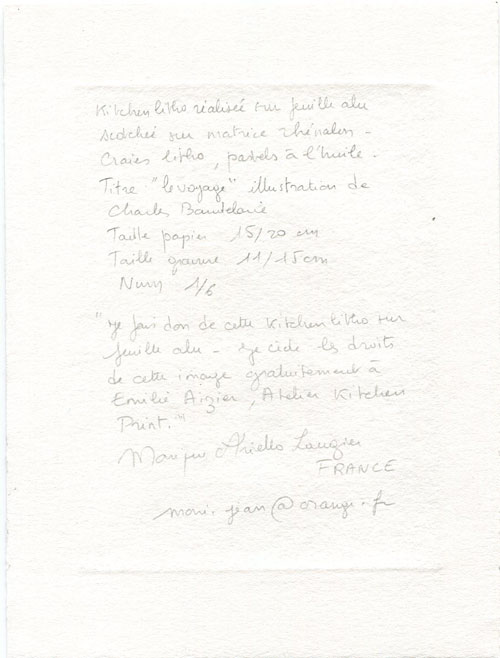 Kitchen litho réalisée sur feuille alu
scotchée sur matrice rhénalon -
Craies litho, pastels à l'huile -
Titre "le voyage" illustration de
Charles Baudelaire
Taille papier 15/20 cm
Taille gravure 11/15 cm
Num 1/6
"Je fais don de cette Kitchen litho sur
feuille alu - Je cède les droits
de cette image gratuitement à
Emilie Aizier, Atelier Kitchen
Print."
Monique Ariello Laugier
FRANCE
moni.jean@orange.fr